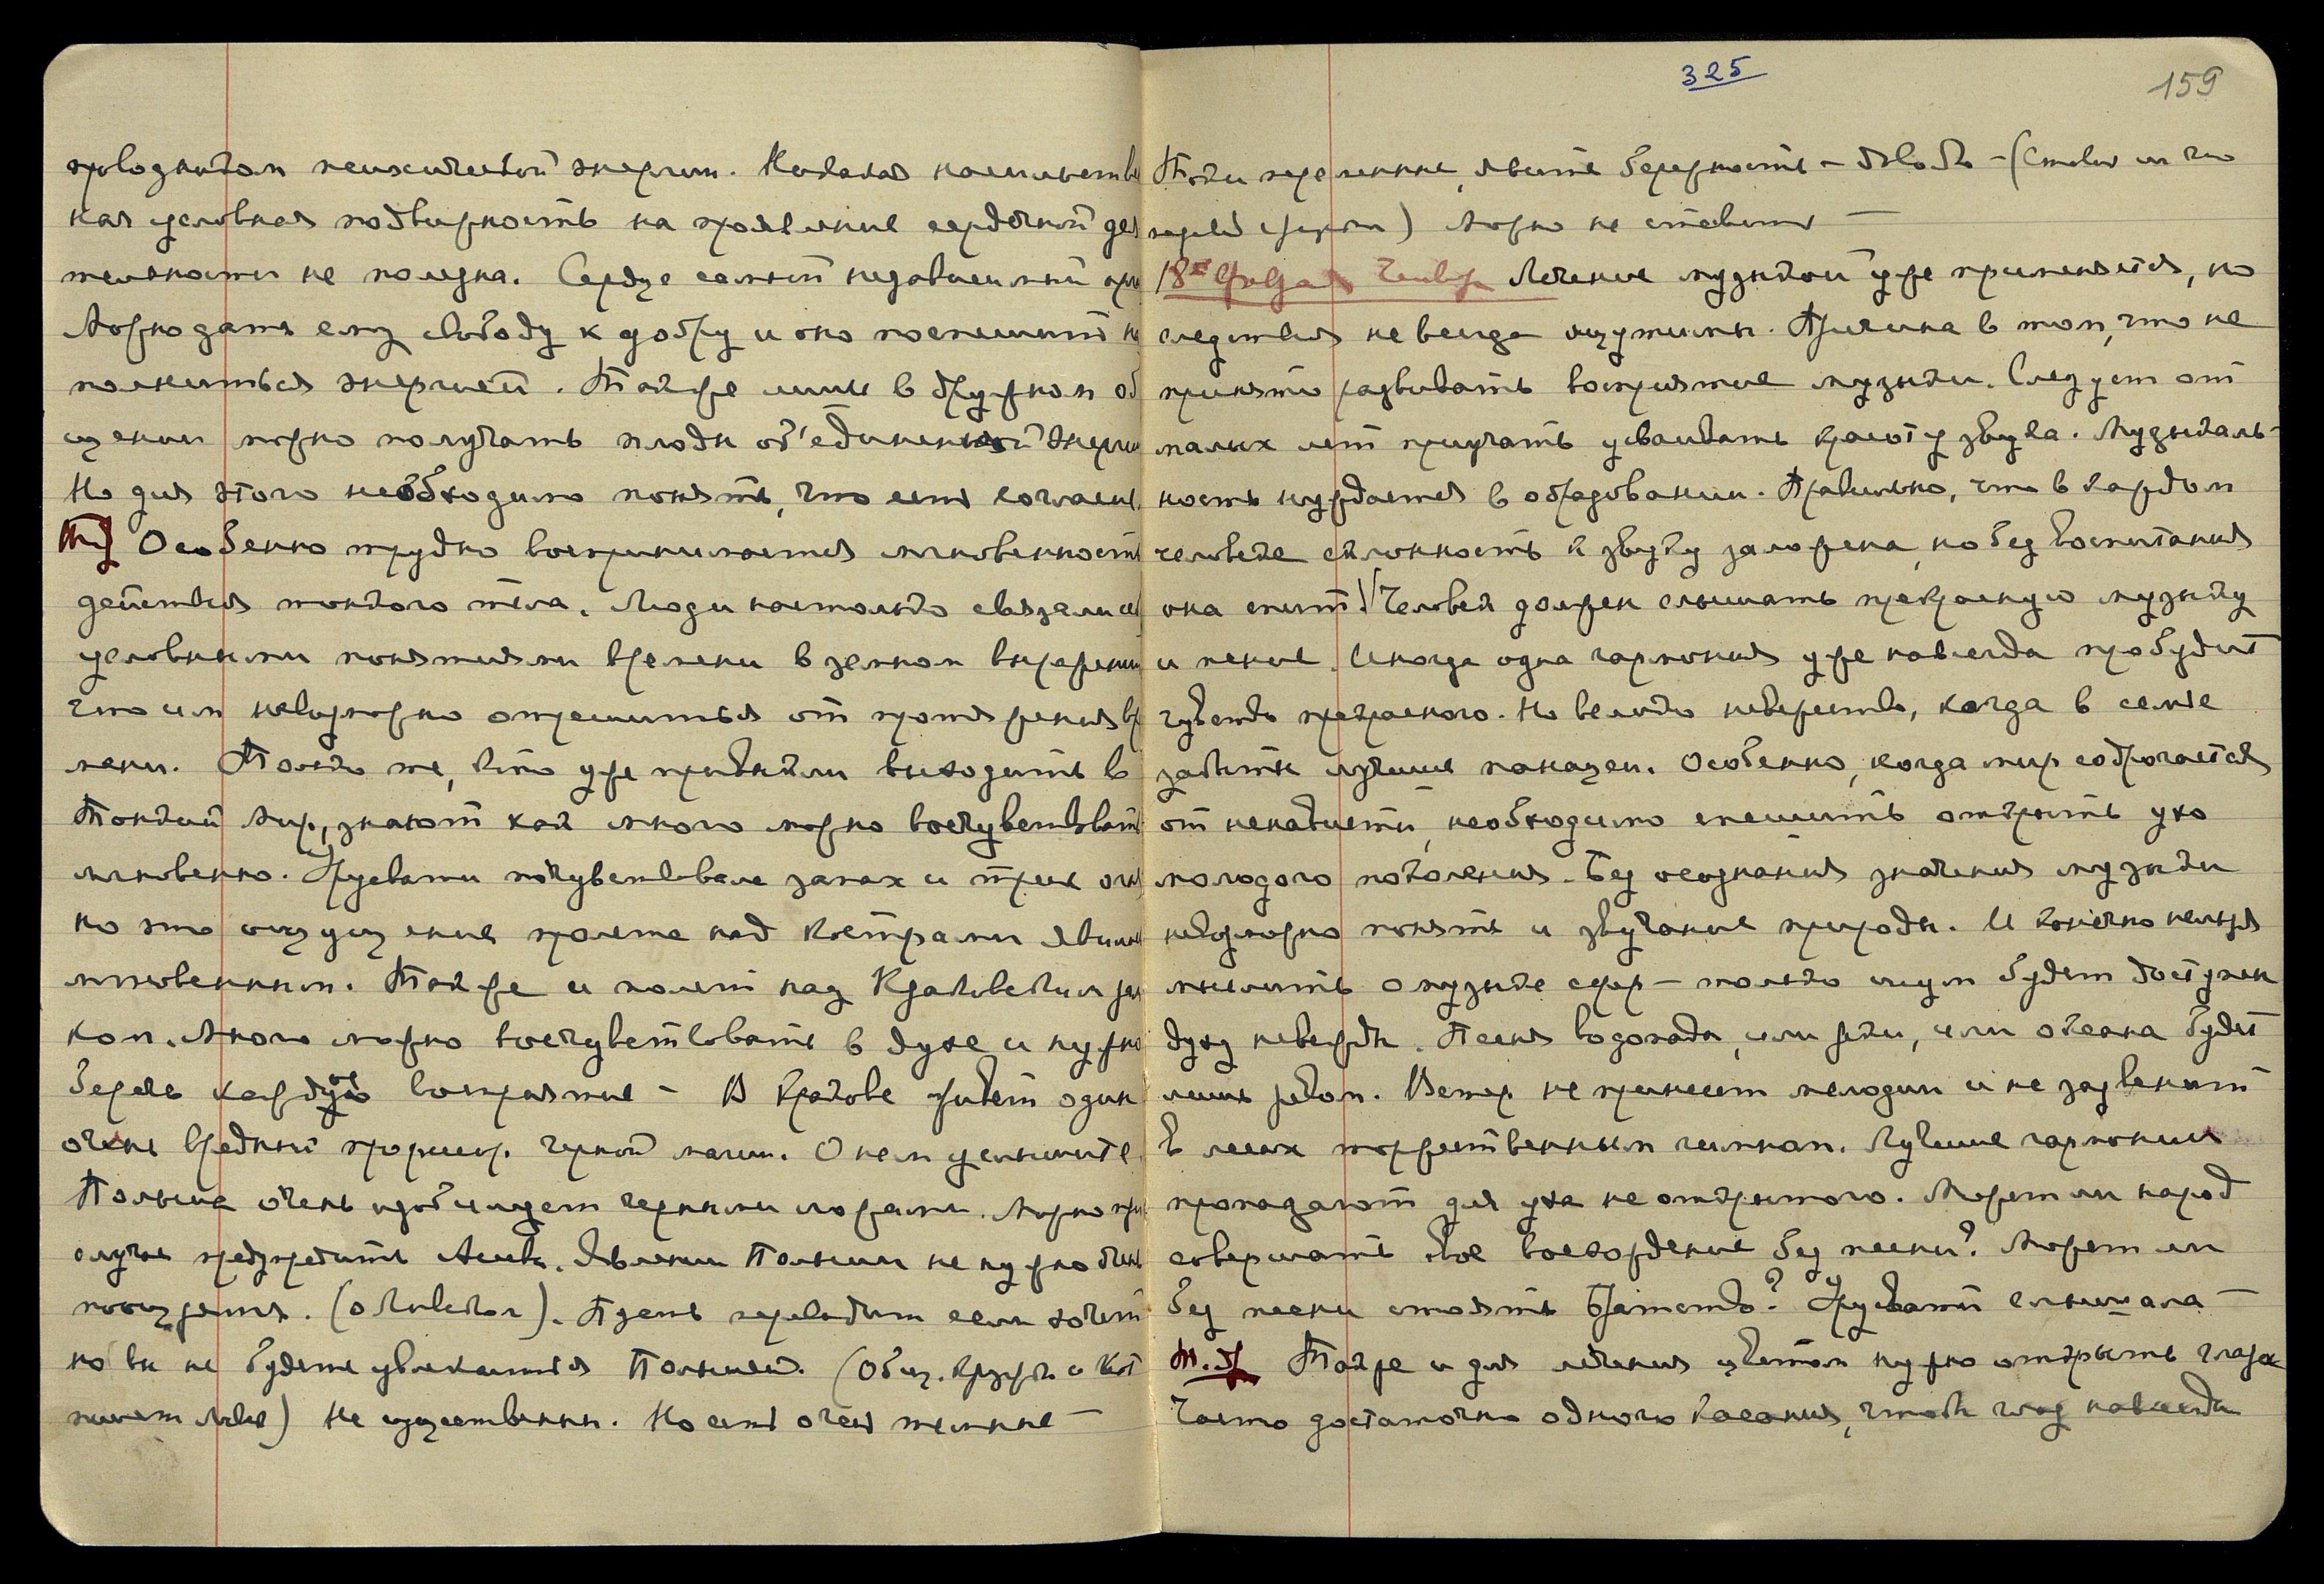 проводником психической энергии. Никакая насильствен
ная условная подвижность на проявление сердечной дея
тельности не полезна. Сердце самый независимый орга
Можно дать ему свободу к добру и оно поспешит на
полниться энергией. Также лишь в дружном об
щении можно получать плоды об'единенной энергии
Но для этого необходимо понять, что есть согласие.
Особенно трудно воспринимается мгновенность
действия тонкого тела. Люди настолько связали себя
условными понятиями времени в земном выражении
что им невозможно отрешиться от протяжения вре
мени. Только те, кто уже привыкли выходить в
Тонкий Мир, знают как много можно восчувствовать
мгновенно. Урусвати почувствовала запах и треск огня
но это ощущение пролета над кострами явилось
мгновенным. Также и полет над Краковским
ком. Много можно восчувствовать в духе и нужно
беречь каждое восприятие – В Кракове живет один
очень вредный професор. черной магии. О нем услышите.
Польша очень изобилует черными ложами. Можно при
случае предупредить Асеева. Явлении Польши не нужно
поощрения. Пусть переводит если хочет
но вы не будете увлекаться Польшей. (Общ. Кружка и
пишет Лукин) Не существенны. Но есть очень темные –
325
159
Токи переменные, явите бережность – (Ставил ли что
перед сферой) Можно не ставить –
18ᵉ февраля Четверг Лечение музыкой уже применяется, но
следствия не всегда ощутимы. Причина в том, что не
принято развивать восприятие музыки. Следует от
малых лет приучать усваивать красоту звука. Музыкаль-
ность нуждается в образовании. Правильно, что в каждом
человеке склонность к звуку заложена, но без воспитания
она спит. Человек должен слышать прекрасную музыку
и пение. Иногда одна гармония уже навсегда пробудит
чувство прекрасного. Но велико невежество, когда в семье
забыты лучшие панацеи. Особенно, когда мир содрогается
от ненависти, необходимо спешить открыть ухо
молодого поколения. Без осознания значения музыки
невозможно понять и звучание природы. И конечно нельзя
мыслить о музыке сфер – только шум будет доступен
духу невежды. Песня водопада, или реки, или океана будет
лишь ревом. Ветер не принесет мелодии и не зазвенит
в лесах торжественным гимном. Лучшие гармонии
пропадают для уха не открытого. Может ли народ
совершать свое восхождение без песни? Может ли
без песни стоять Братство? Урусвати слышала –
Также и для лечения цветом нужно открыть глаза
Часто достаточно одного касания, чтобы глаз навсегда